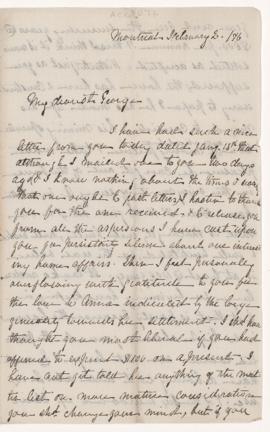 Montreal February 2. /96
My dearest George
I have had such a nice
letter from you to-day dated Jany. 18th that
although I mailed one to you two days
ago & I know nothing about the times & ways
that one ought to post letters I hasten to thank
you for the one received, & to release you
from all the aspersions I have cast upon
you for persistory silence about our interest-
ing home affairs. Then I feel personally
overflowing with gratitude to you for
the love to Anna indicated by the large
generosity towards her settlement. I shd have
thought you most liberal if you had
offered to expend $100 on a present. I
have not yet told her anything of the mat-
ter lest on more mature consideration
you shd change your mind, but if you